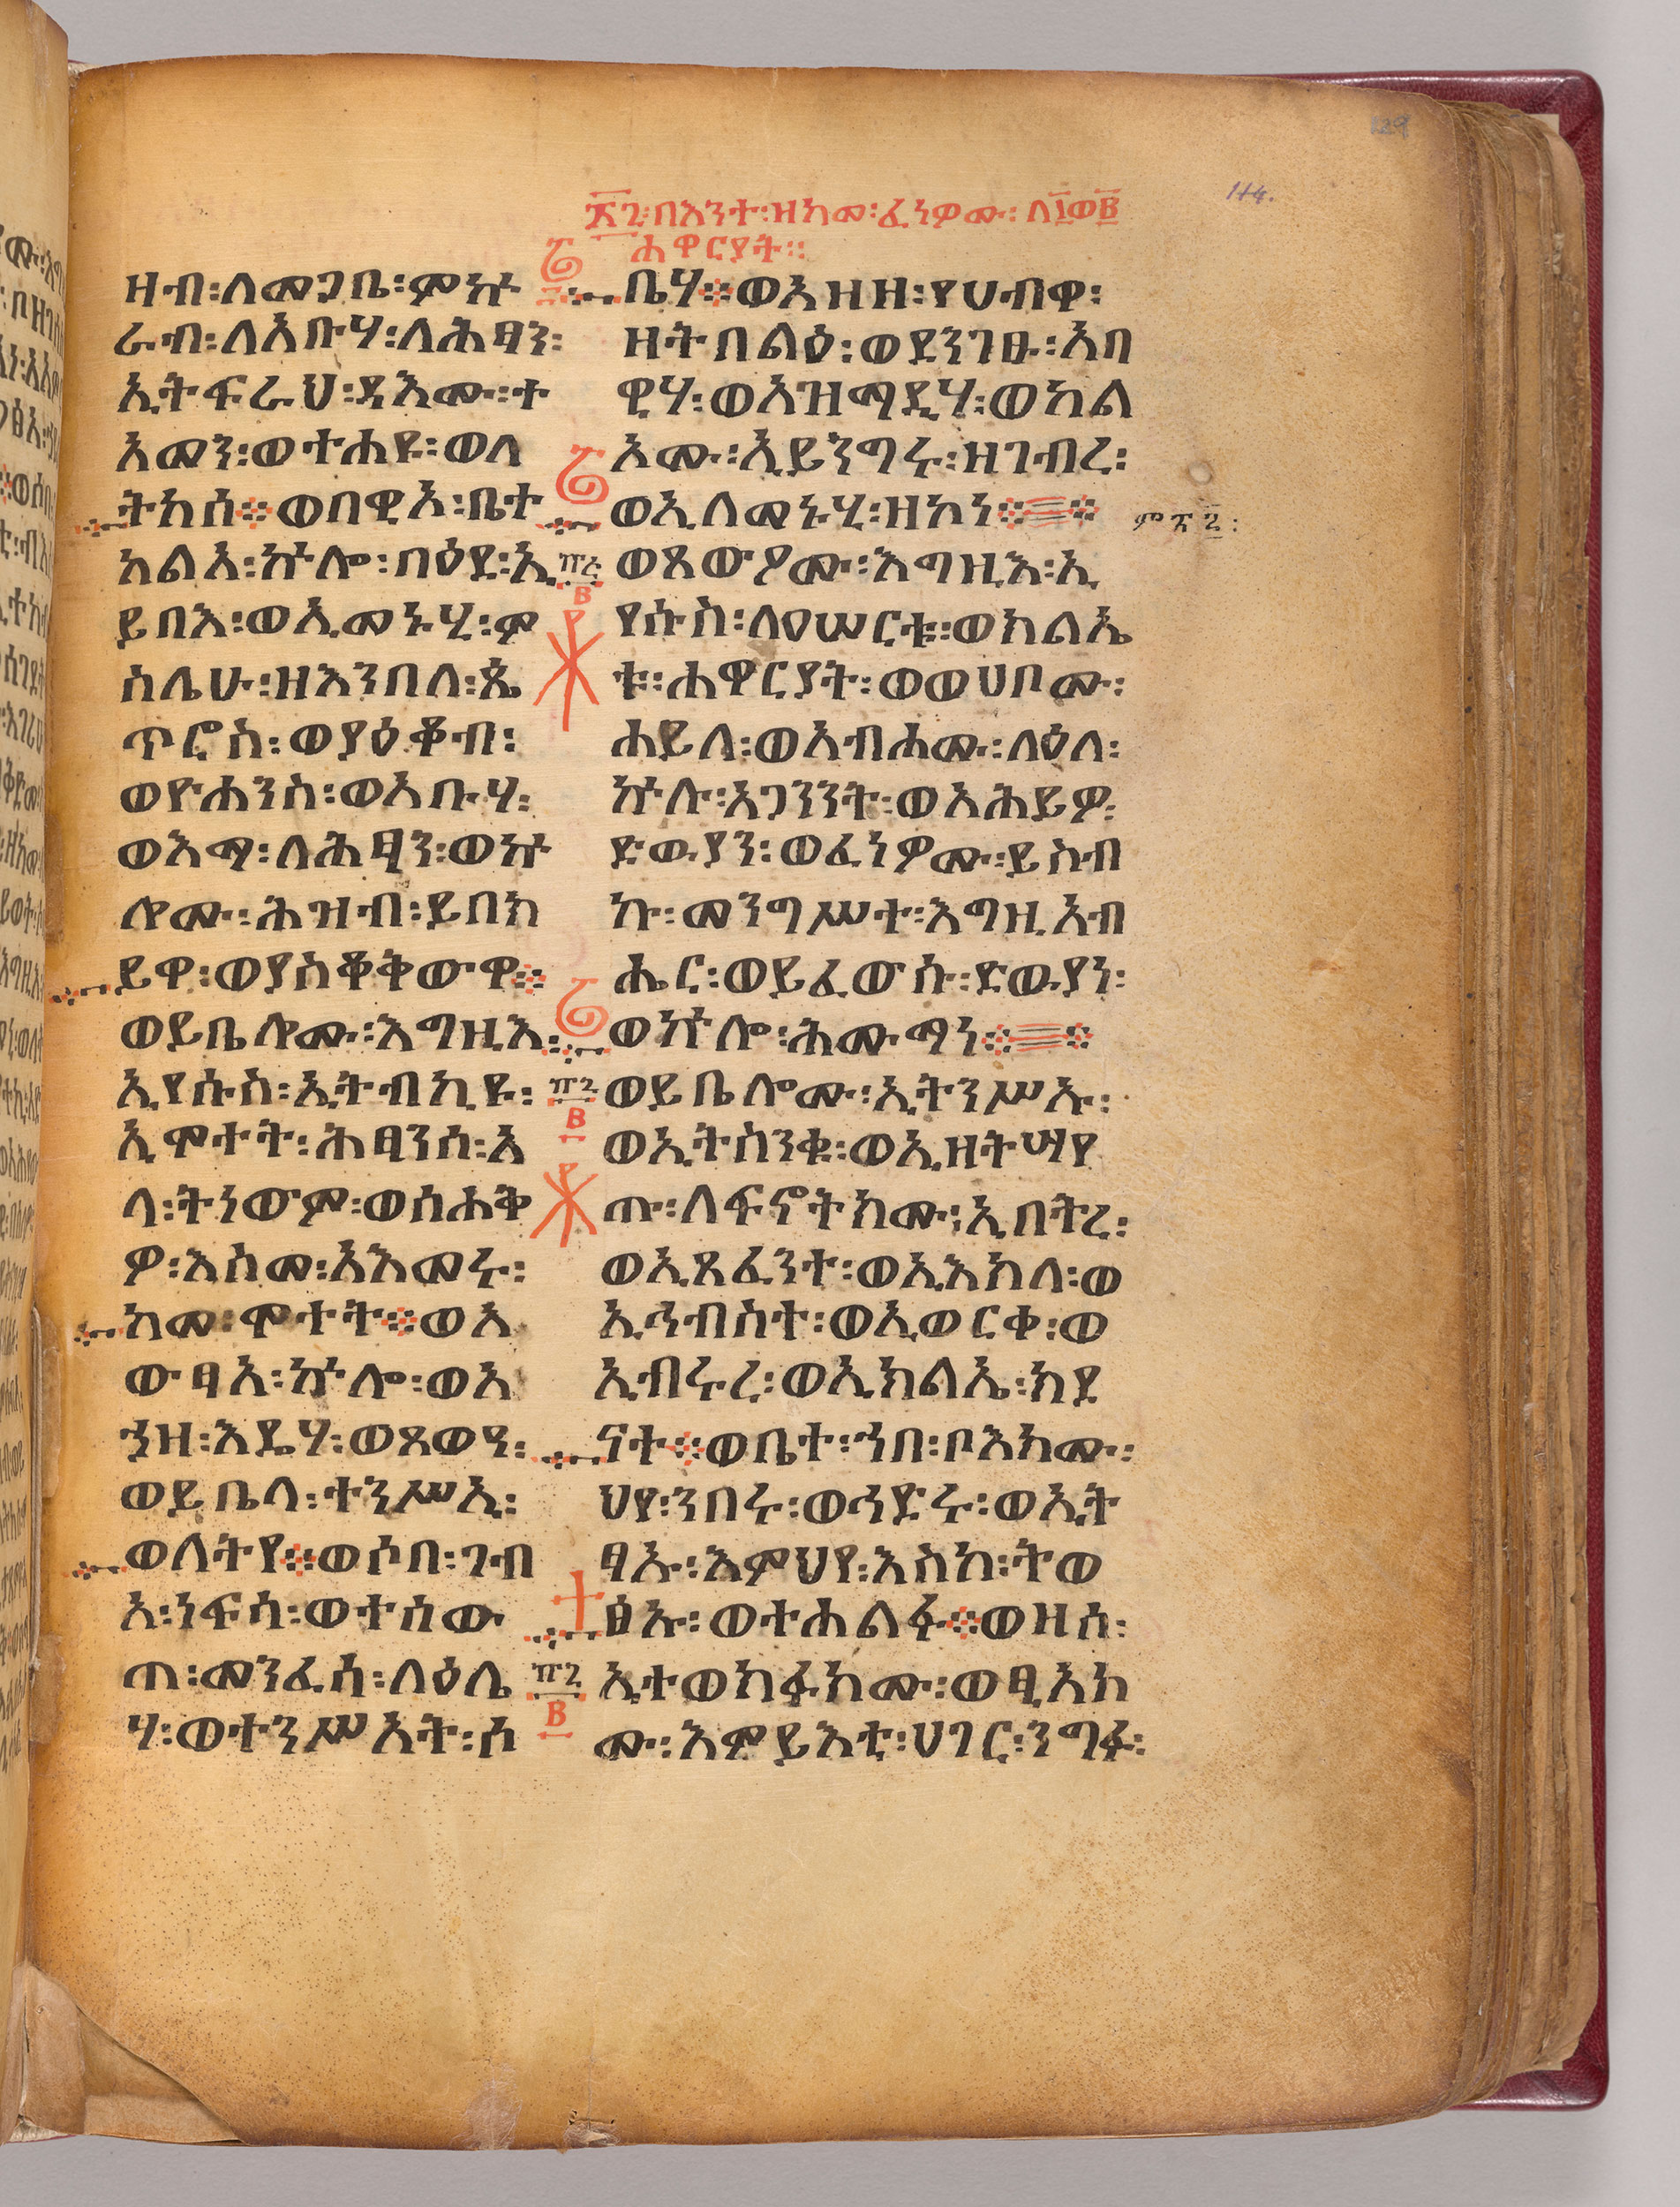 114.
፳፫፡በእንተ፡ዘከመ፡ፈነዎሙ፡ለ፲ወ፪
ሐዋርያት።
ዘብ፡ለመጋቤ፡ምኵ
ራብ፡ለአቡሃ፡ለሕፃን፡
ኢትፍራህ፡ዳእሙ፡ተ
አመን፡ወተሐዩ፡ወለ
ትከሰ፨ወበዊአ፡ቤተ
አልአ፡ኵሎ፡በዕደ፡ኢ
ይበአ፡ወኢመኑሂ፡ም
ስሌሁ፡ዘእንበለ፡ጴ
ጥሮስ፡ወያዕቆብ፡
ወዮሐንስ፡ወአቡሃ፡
ወእማ፡ለሕፃን፡ወኵ
ሎሙ፡ሕዝብ፡ይበክ
ይዋ፡ወያስቆቅውዋ፨
ወይቤሎሙ፡እግዚእ፡
ኢየሱስ፡ኢትብኪዩ፡
ኢሞተት፡ሕፃንሰ፡አ
ላ፡ትነውም፡ወሰሐቅ
ዎ፡እስመ፡አእመሩ፡
ከመ፡ሞተት፨ወአ
ውፃአ፡ኵሎ፡ወአ
ኀዘ፡እዴሃ፡ወጸውዓ፡
ወይቤላ፡ተንሥኢ፡
ወለትየ፨ወሶበ፡ገብ
አ፡ነፍሳ፡ወተሰው
ጠ፡መንፈሳ፡ለዕሌ
ሃ፡ወተንሥአት፡ሶ
ቤሃ፨ወአዘዘ፡የሀብዋ፡
ዘትበልዕ፡ወደንገፁ፡አበ
ዊሃ፡ወአዝማዲሃ፡ወከል
አሙ፡ኢይንግሩ፡ዘገብረ፡
ወኢለመኑሂ፡ዘኮነ፨፨
ምዕ፳፪፡
ወጸውዖሙ፡እግዚእ፡ኢ
የሱስ፡ለዐሠርቱ፡ወክልኤ
ቱ፡ሐዋርያት፡ወወሀቦሙ፡
ሐይለ፡ወአብሐሙ፡ለዕለ፡
ኵሉ፡አጋንንት፡ወአሕይዎ፡
ድውያን፡ወፈነዎሙ፡ይስብ
ኩ፡መንግሥተ፡እግዚአብ
ሔር፡ወይፈውሱ፡ድውያነ፡
ወኵሎ፡ሕሙማነ፨፨
ወይቤሎሙ፡ኢትንሥኡ፡
ወኢትስንቁ፡ወኢዘትሣየ
ጡ፡ለፍኖትክሙ፡ኢበትረ፡
ወኢጸፈንተ፡ወኢእክለ፡ወ
ኢኅብስተ፡ወኢወርቀ፡ወ
ኢብሩረ፡ወኢክልኤ፡ክዳ
ናት፨ወቤተ፡ኀበ፡ቦእክሙ፡
ህየ፡ንበሩ፡ወኅድሩ፡ወኢት
ፃኡ፡እምህየ፡እስከ፡ትወ
ፅኡ፡ወተሐልፉ፨ወዘሰ፡
ኢተወክፉክሙ፡ወፂአክ
ሙ፡እምይእቲ፡ሀገር፡ንግፉ፡